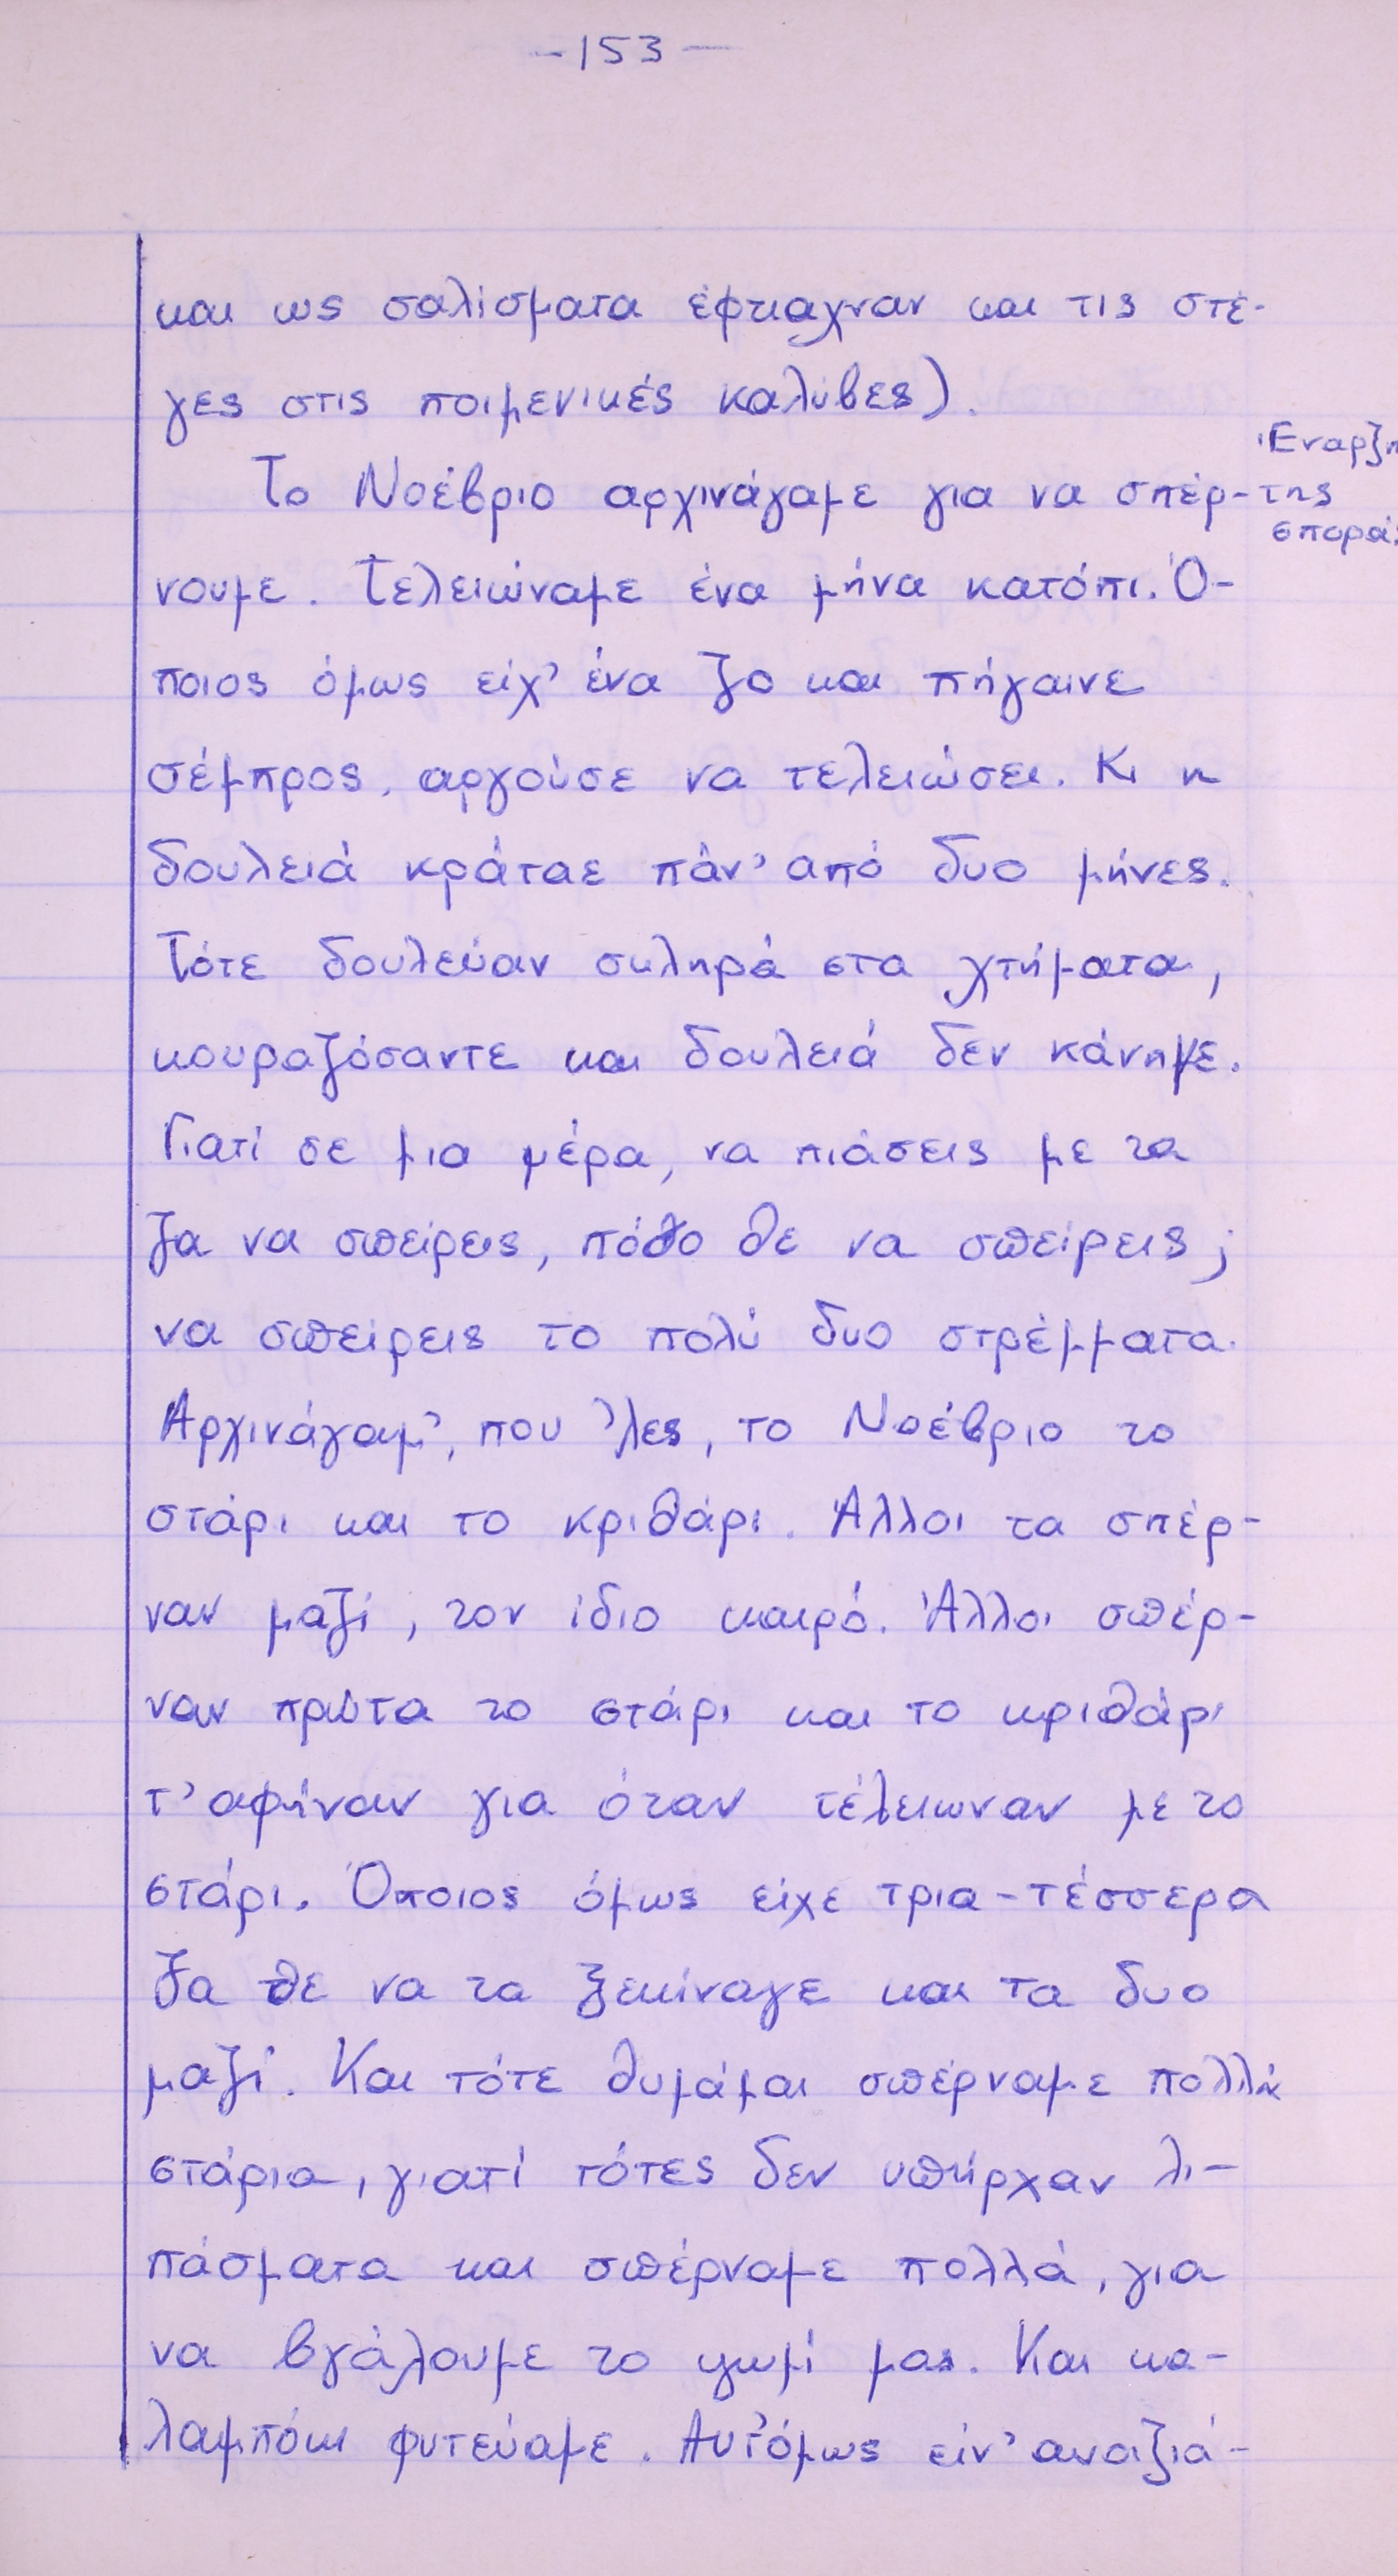 -153-
και ως σαλίσματα έφτιαχναν και τις στέ-
γες στις ποιμενικές καλύβες).
Έναρξη
Το Νοέβριο αρχινάγαμε για να σπέρ-
της
σποράς
νουμε. Τελειώναμε ένα μήνα κατόπι. Ό-
ποιος όμως είχ' ένα ζο και πήγαινε
σέμπρος, αργούσε να τελειώσει. Κι η
δουλειά κράταε πάν' από δυο μήνες.
Τότε δουλεύαν σκληρά στα χτήματα,
κουραζόσαντε και δουλειά δεν κάνηγε.
Γιατί σε μια μέρα, να πιάσεις με τα
ζα να σπείρεις, πόσο θε να σπείρεις;
να σπείρεις το πολύ δυο στρέμματα.
Αρχινάγαμ', που 'λες, το Νοέβριο το
στάρι και το κριθάρι. Άλλοι τα σπέρ-
ναν μαζί, τον ίδιο καιρό. Άλλοι σπέρ-
ναν πρώτα το στάρι και το κριθάρι
τ' αφήναν για όταν τέλειωναν με το
στάρι. Όποιος όμως είχε τρια-τέσσερα
ζα θε να τα ξεκίναγε και τα δυο
μαζί. Και τότε θυμάμαι σπέρναμε πολλά
στάρια, γιατί τότες δεν υπήρχαν λι-
πάσματα και σπέρναμε πολλά, για
να βγάλουμε το ψωμί μας. Και κα-
λαμπόκι φυτεύαμε. Αυτ' όμως είν' ανοιξιά-